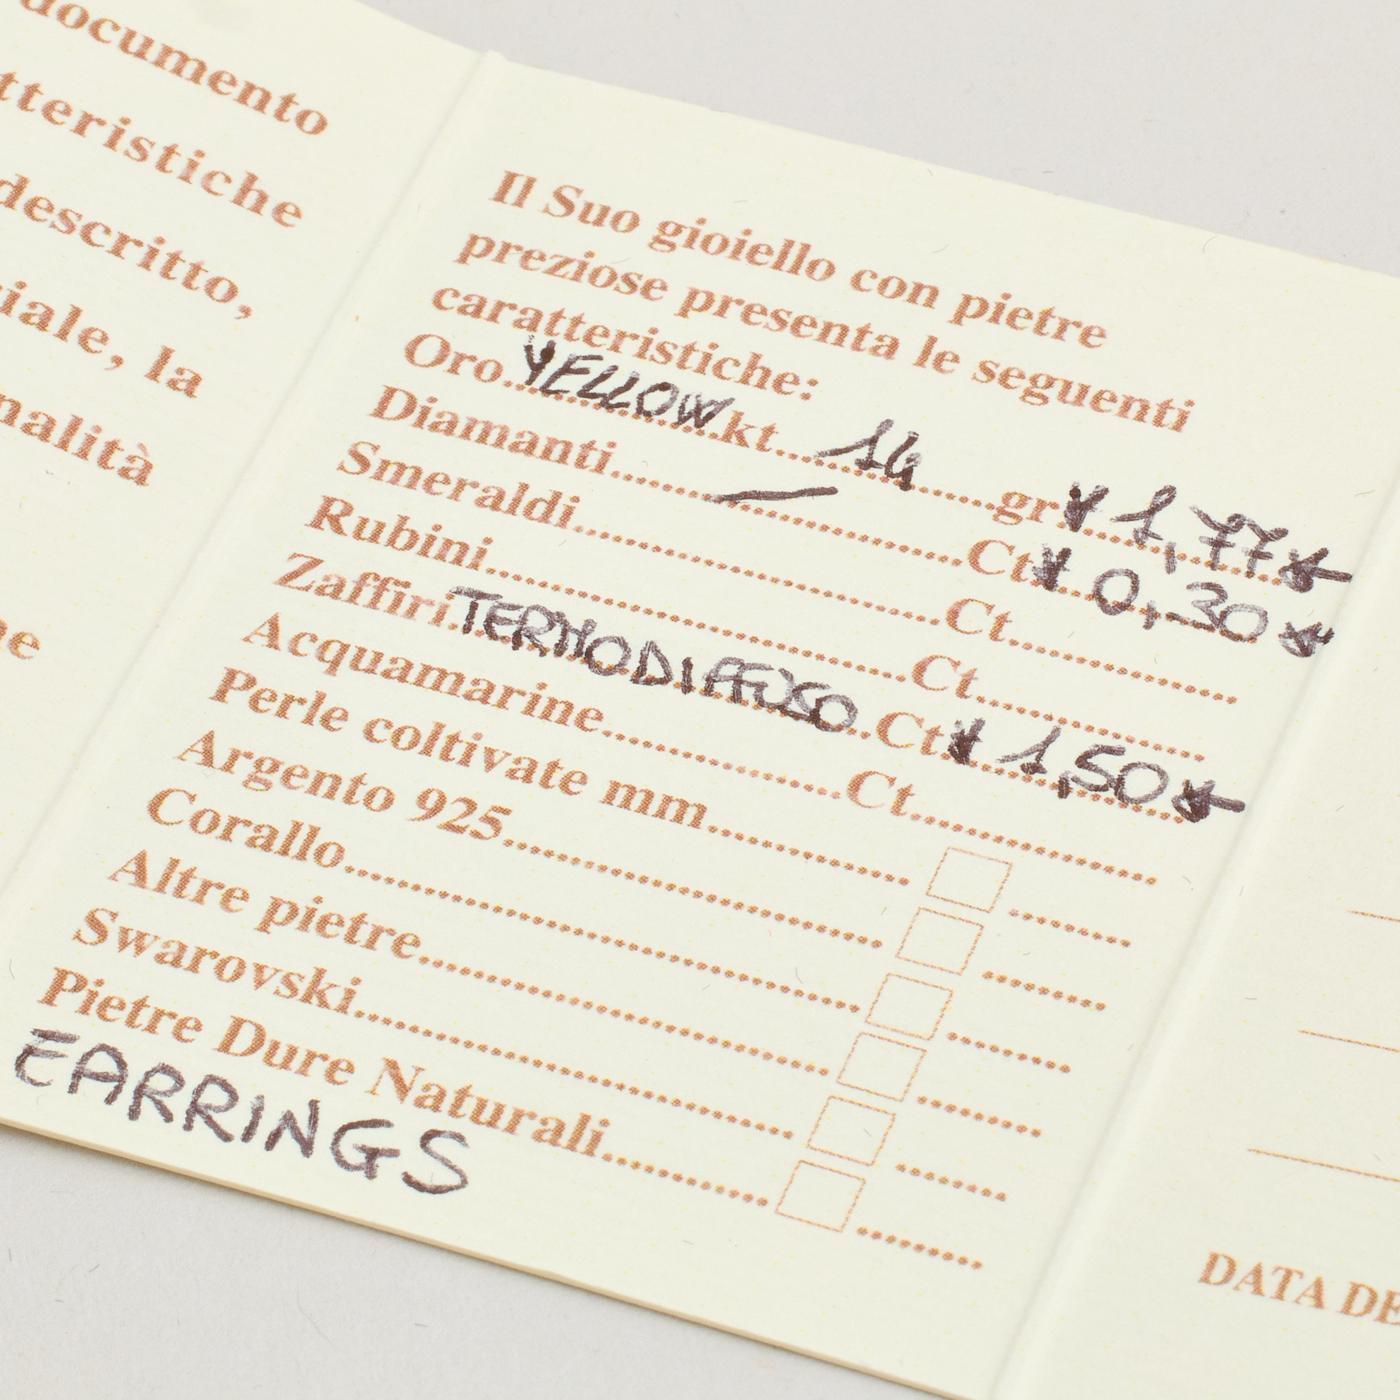 documento
tteristiche
descritto,
iale, la
nalità
ne
Il Suo gioiello con pietre
preziose presenta le seguenti
caratteristiche:
Oro...YELLOW...kt...14...gr. 1,77
Diamanti...—...Ct. 0,30
Smeraldi...Ct...
Rubini...Ct...
Zaffiri...TERMODIFFUSO...Ct. 1,50
Acquamarine...Ct...
Perle coltivate mm...
Argento 925...
Corallo...
Altre pietre...
Swarovski...
Pietre Dure Naturali...
EARRINGS
DATA DE